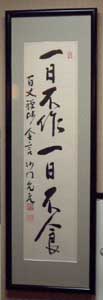 一日不作一日不食
百丈禅師金言沙门